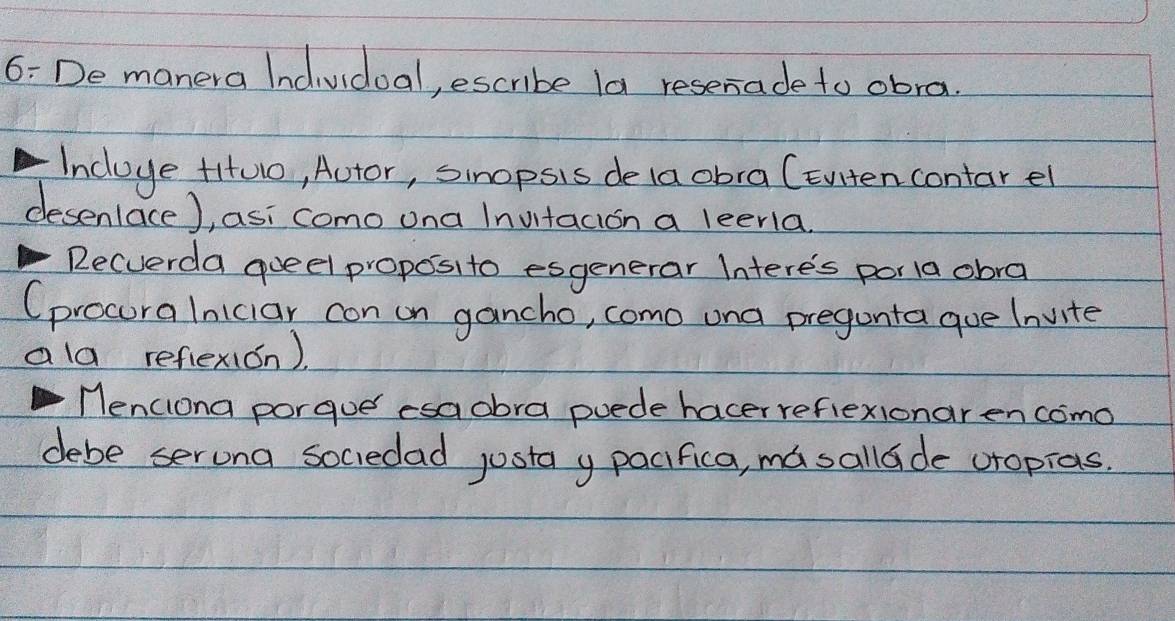 6.- De manera Individual, escribe la reseña de tu obra.
▶ Incluye titulo, Autor, sinopsis de la obra (Eviten contar el
desenlace), así como una Invitación a leerla.
▶ Recuerda que el propósito es generar Interés por la obra
(procura Iniciar con un gancho, como una pregunta que Invite
a la reflexión).
▶ Menciona porqué esa obra puede hacer reflexionar en cómo
debe ser una sociedad justa y pacífica, más allá de utopías.